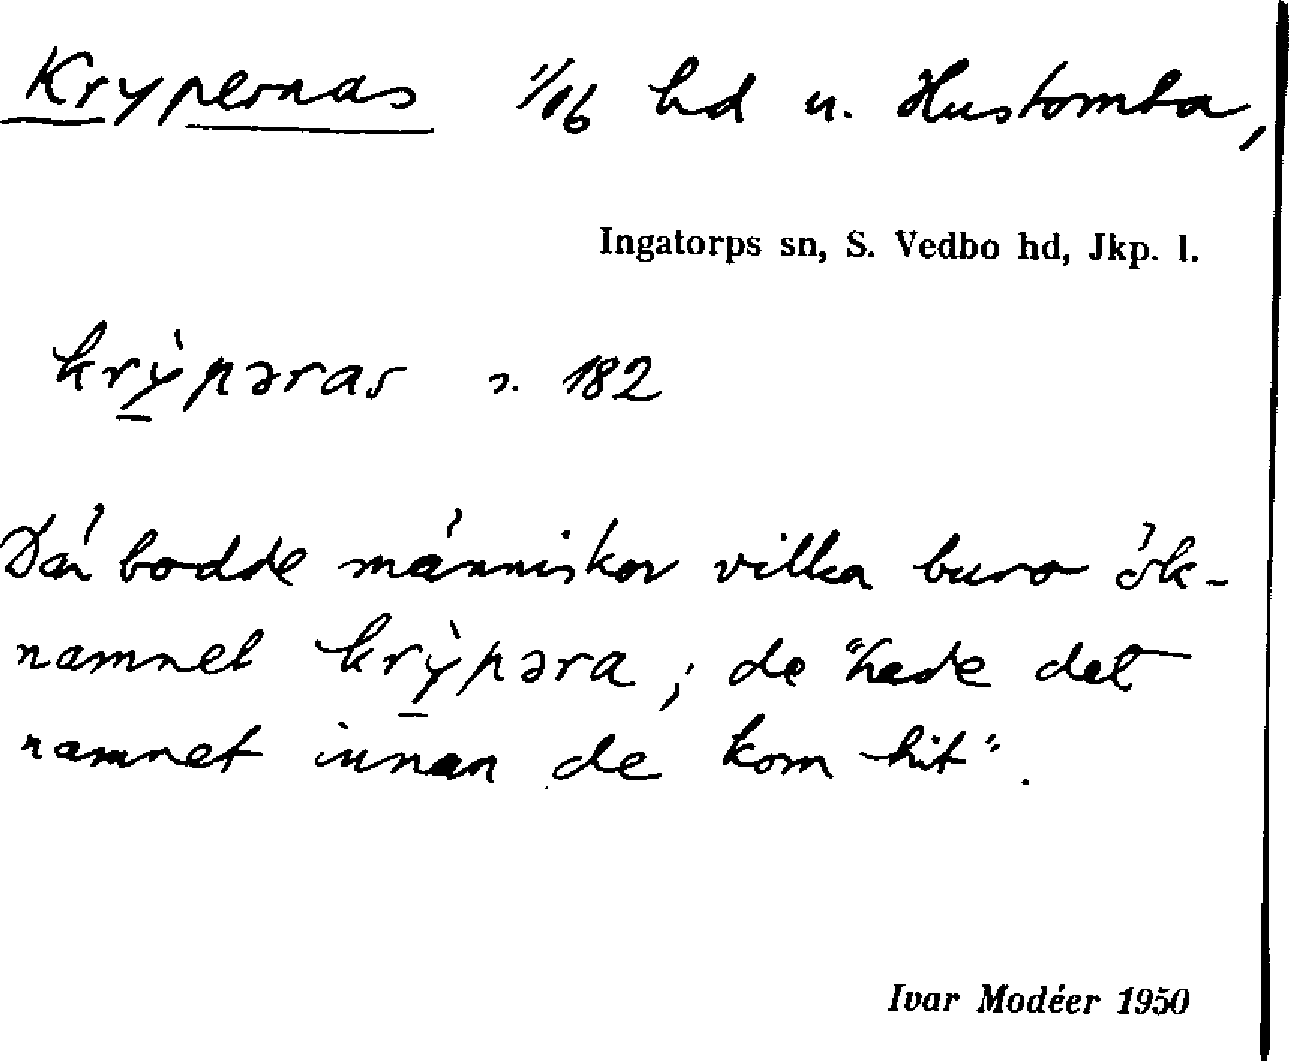 Krypernas 1/16 hd u. Hustomta,
Ingatorps sn, S. Vedbo hd, Jkp. l.
krỳpəras s. 182
Där bodde människor vilka buro ök-
namnet krỳpəra; de "hade det
namnet innan de kom hit".
Ivar Modéer 1950